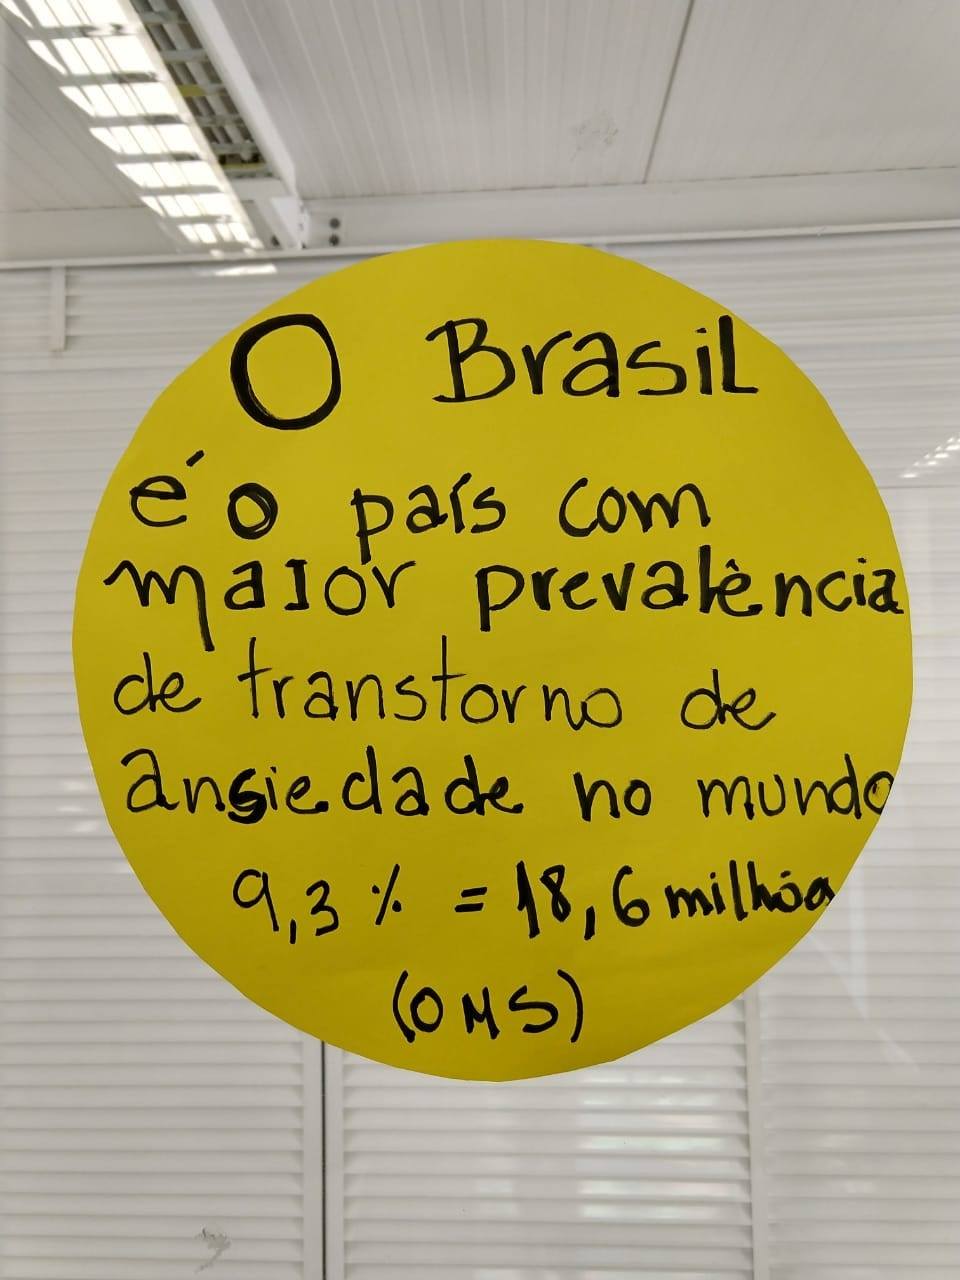 O Brasil
é o país com
maior prevalência
de transtorno de
ansiedade no mundo
9,3% = 18,6 milhõe
(OMS)